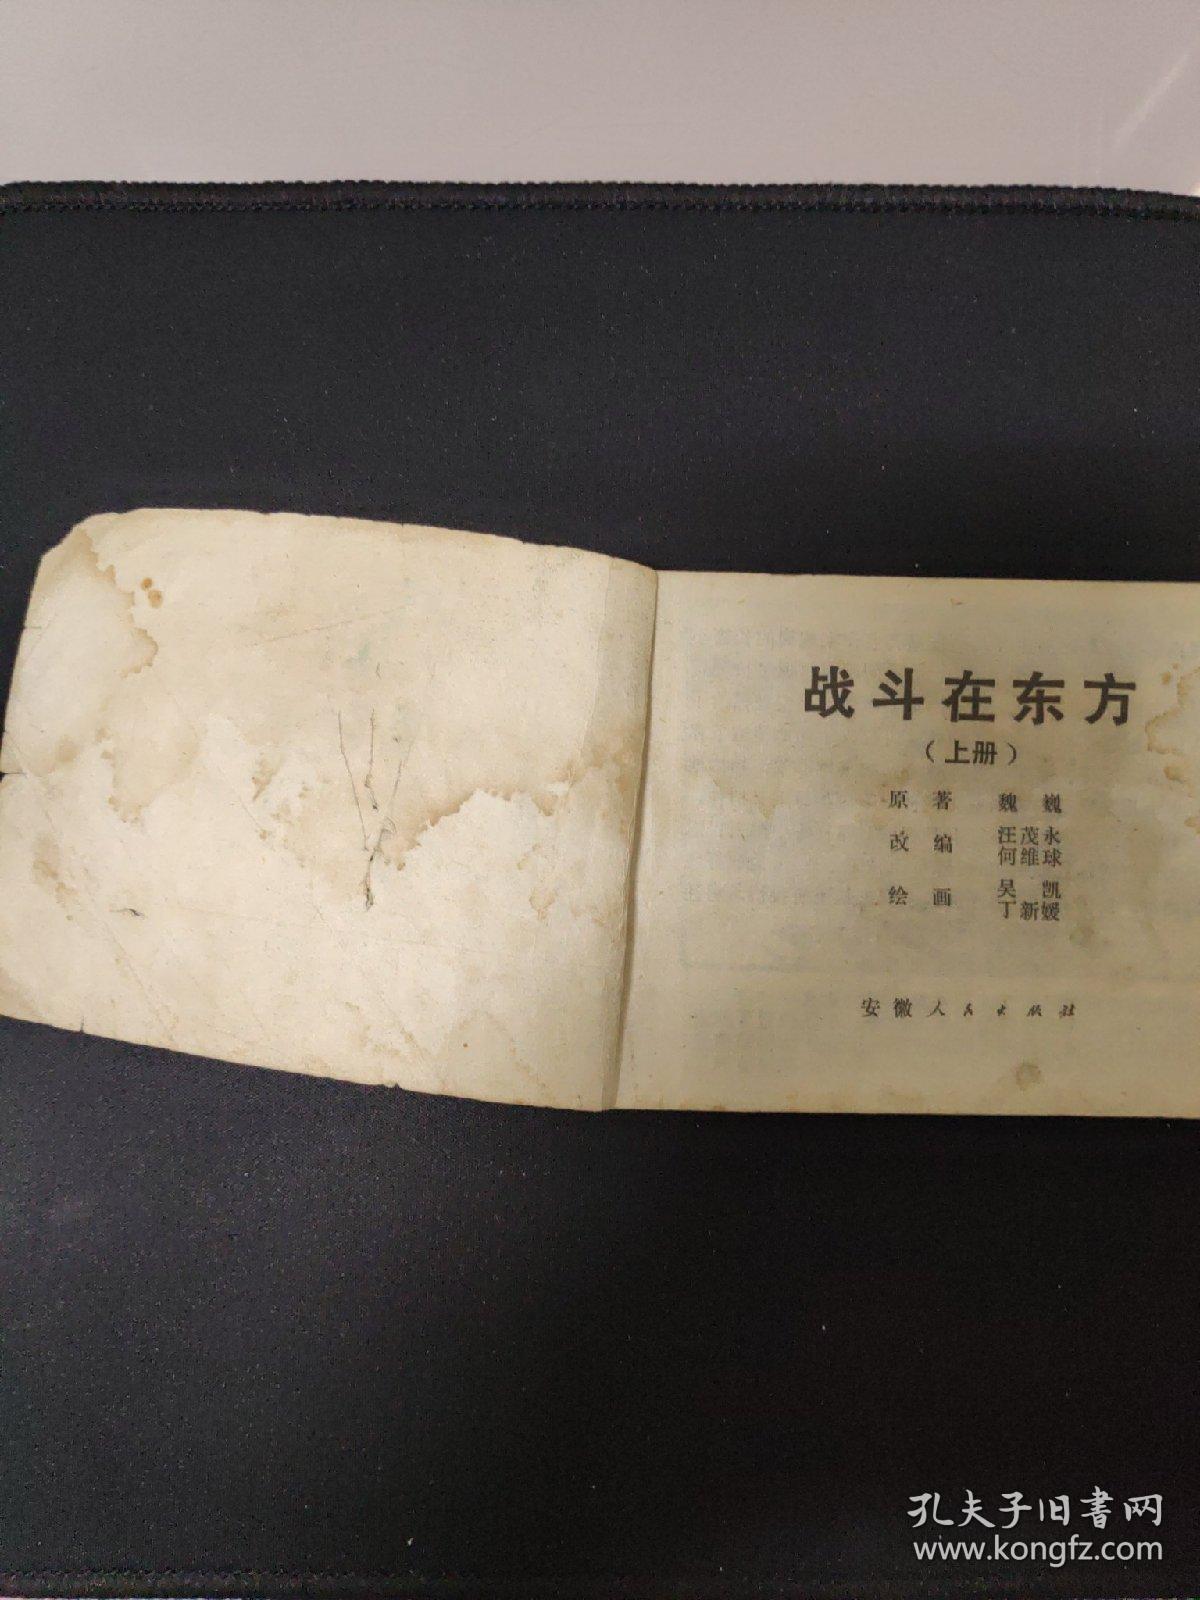 战斗在东方
（上册）
原著 魏巍
改编 汪茂永
何维球
绘画 吴凯
丁新媛
安徽人民出版社
孔夫子旧書网
www.kongfz.com